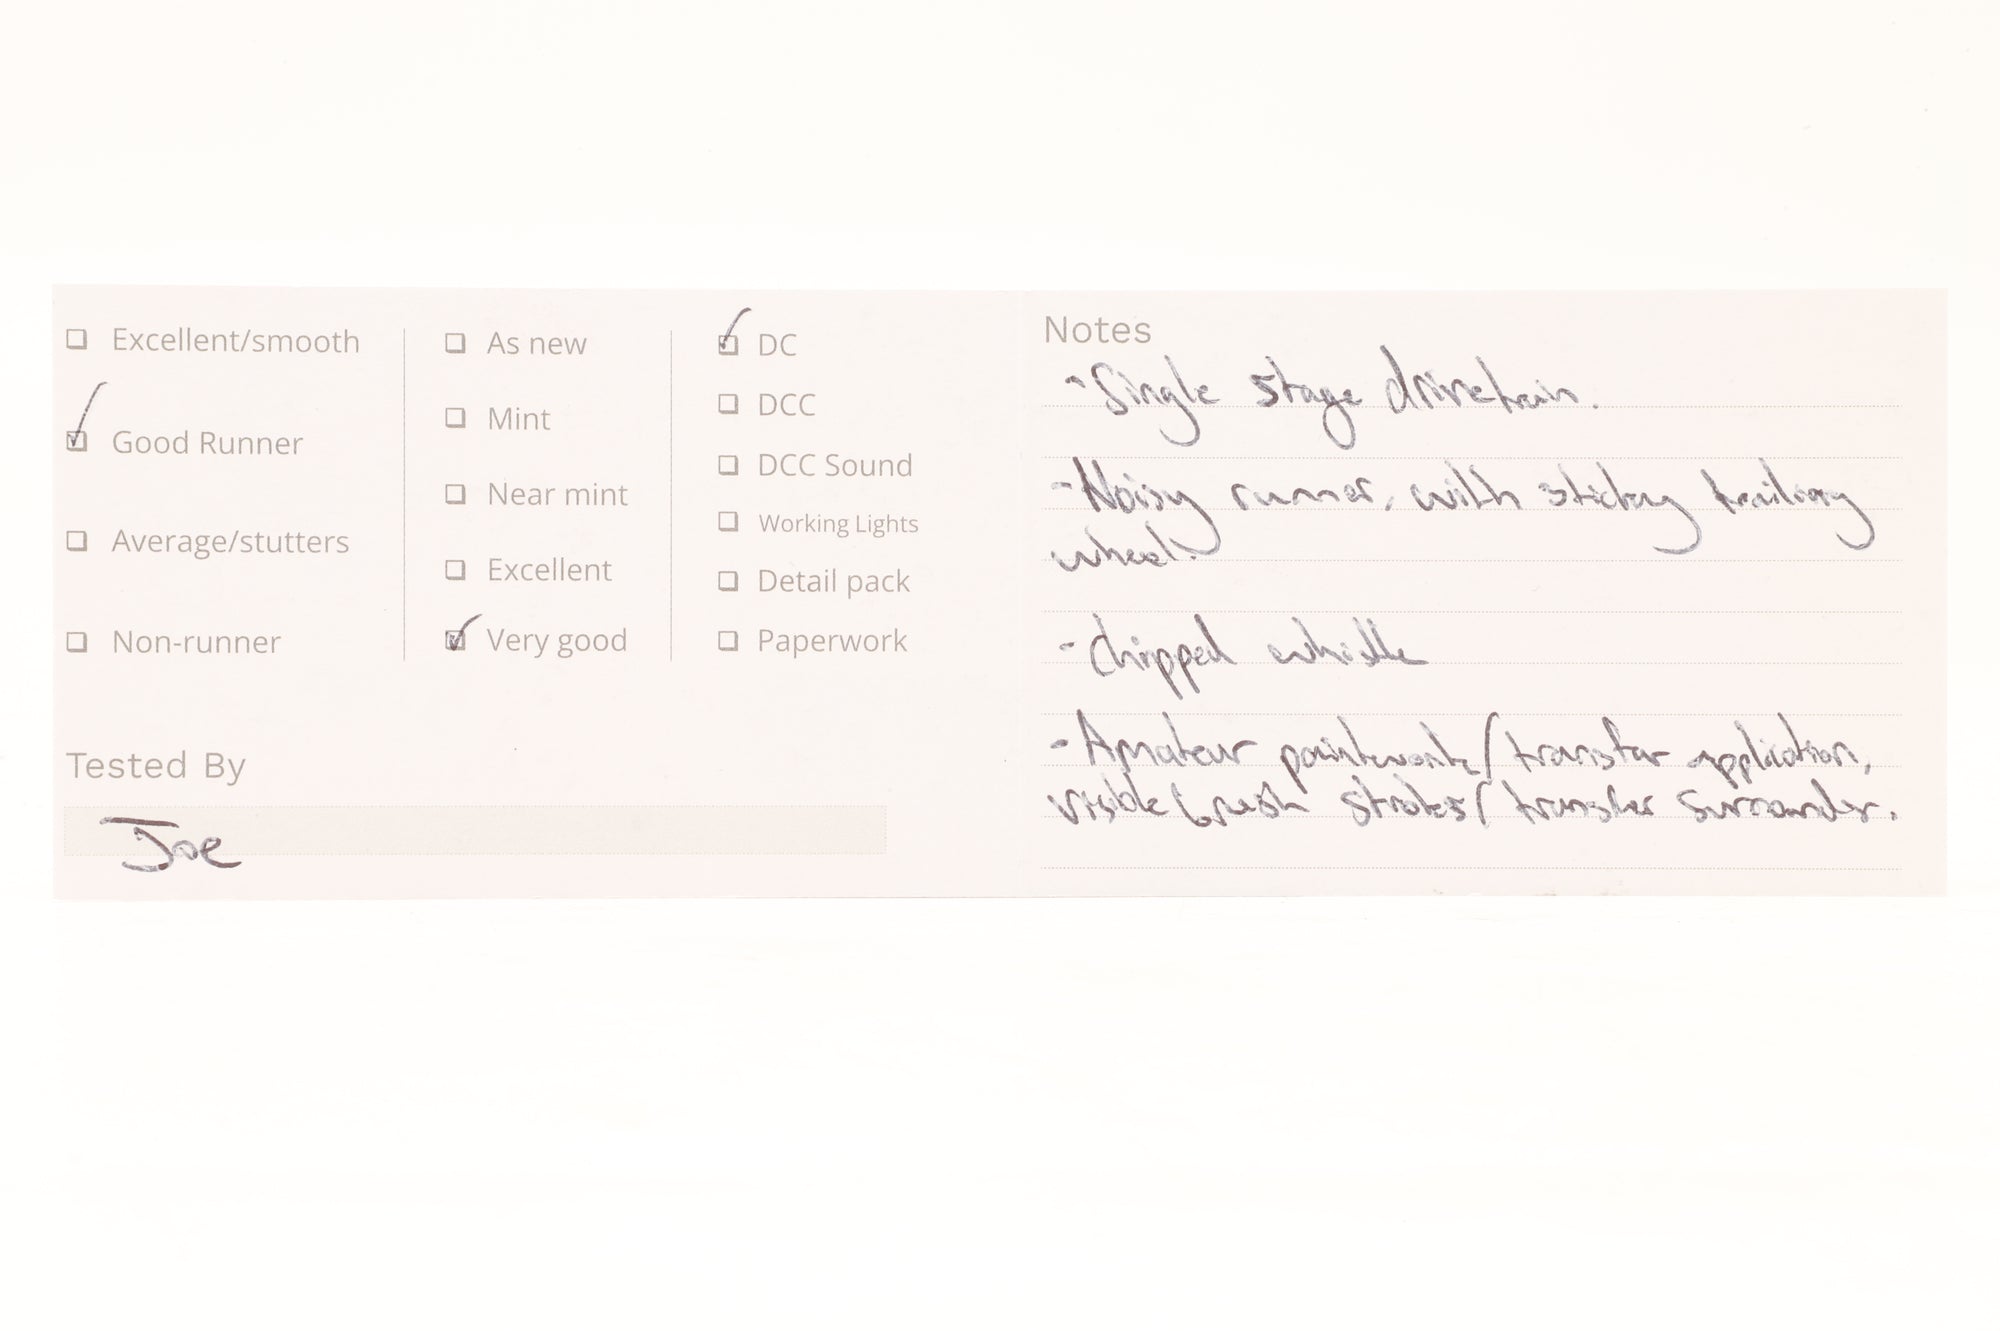 Excellent/smooth
Good Runner
Average/stutters
Non-runner
As new
Mint
Near mint
Excellent
Very good
DC
DCC
DCC Sound
Working Lights
Detail pack
Paperwork
Tested By
Joe
Notes
- Single stage drivetrain.
- Noisy runner, with sticky trailing
wheel.
- Chipped whistle
- Amateur paintwork/transfer application,
visible brush strokes/transfer surrounder.